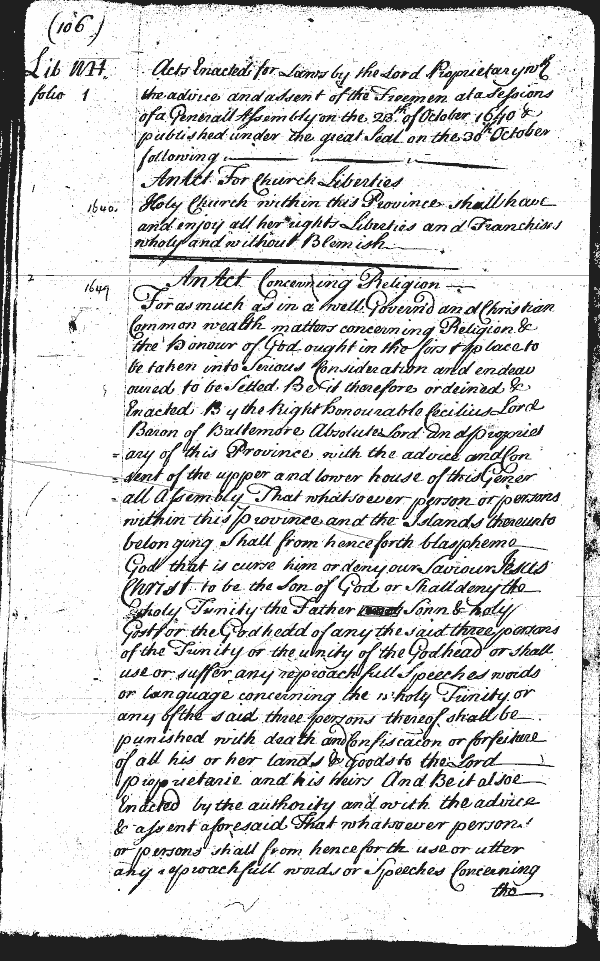 (106)
Lib WH. Acts Enacted for Laws by the Lord Proprietary wth
folio 1 the advice and assent of the Freemen at a Sessions
of a Generall Assembly on the 23th of October 1640 &
published under the great Seal on the 30th October
following
1 An Act For Church Liberties
1640. Holy Church within this Province shall have
and enjoy all her rights Liberties and Franchises
wholy and without Blemish
2 An Act Concerning Religion
1649 For as much as in a well Govern'd and Christian
Common wealth matters concerning Religion &
the Honour of God ought in the first place to
be taken into Serious Consideration and endeav
oured to be Setled Be it therefore ordeined &
Enacted By the Right honourable Cecilius Lord
Baron of Baltemore Absolute Lord and Propriet
=ary of this Province with the advice and Con
=sent of the upper and lower house of this Gener
=all Assembly That whatsoever person or persons
within this Province and the Islands thereunto
belonging shall from henceforth blaspheme
God that is curse him or deny our Saviour Jesus
Christ to be the Son of God or Shall deny the
holy Trinity the Father Sonn & holy
Gost or the Godhedd of any the said three persons
of the Trinity or the unity of the Godhead or shall
use or suffer any reproachfull Speeches words
or language concerning the holy Trinity or
any of the said three persons thereof shall be
punished with death and Confiscacon or forfeiture
of all his or her lands & Goods to the Lord
Proprietarie and his heirs And Be it alsoe
Enacted by the authority and with the advice
& assent aforesaid That whatsoever person
or persons shall from henceforth use or utter
any reproachfull words or Speeches Concerning
the